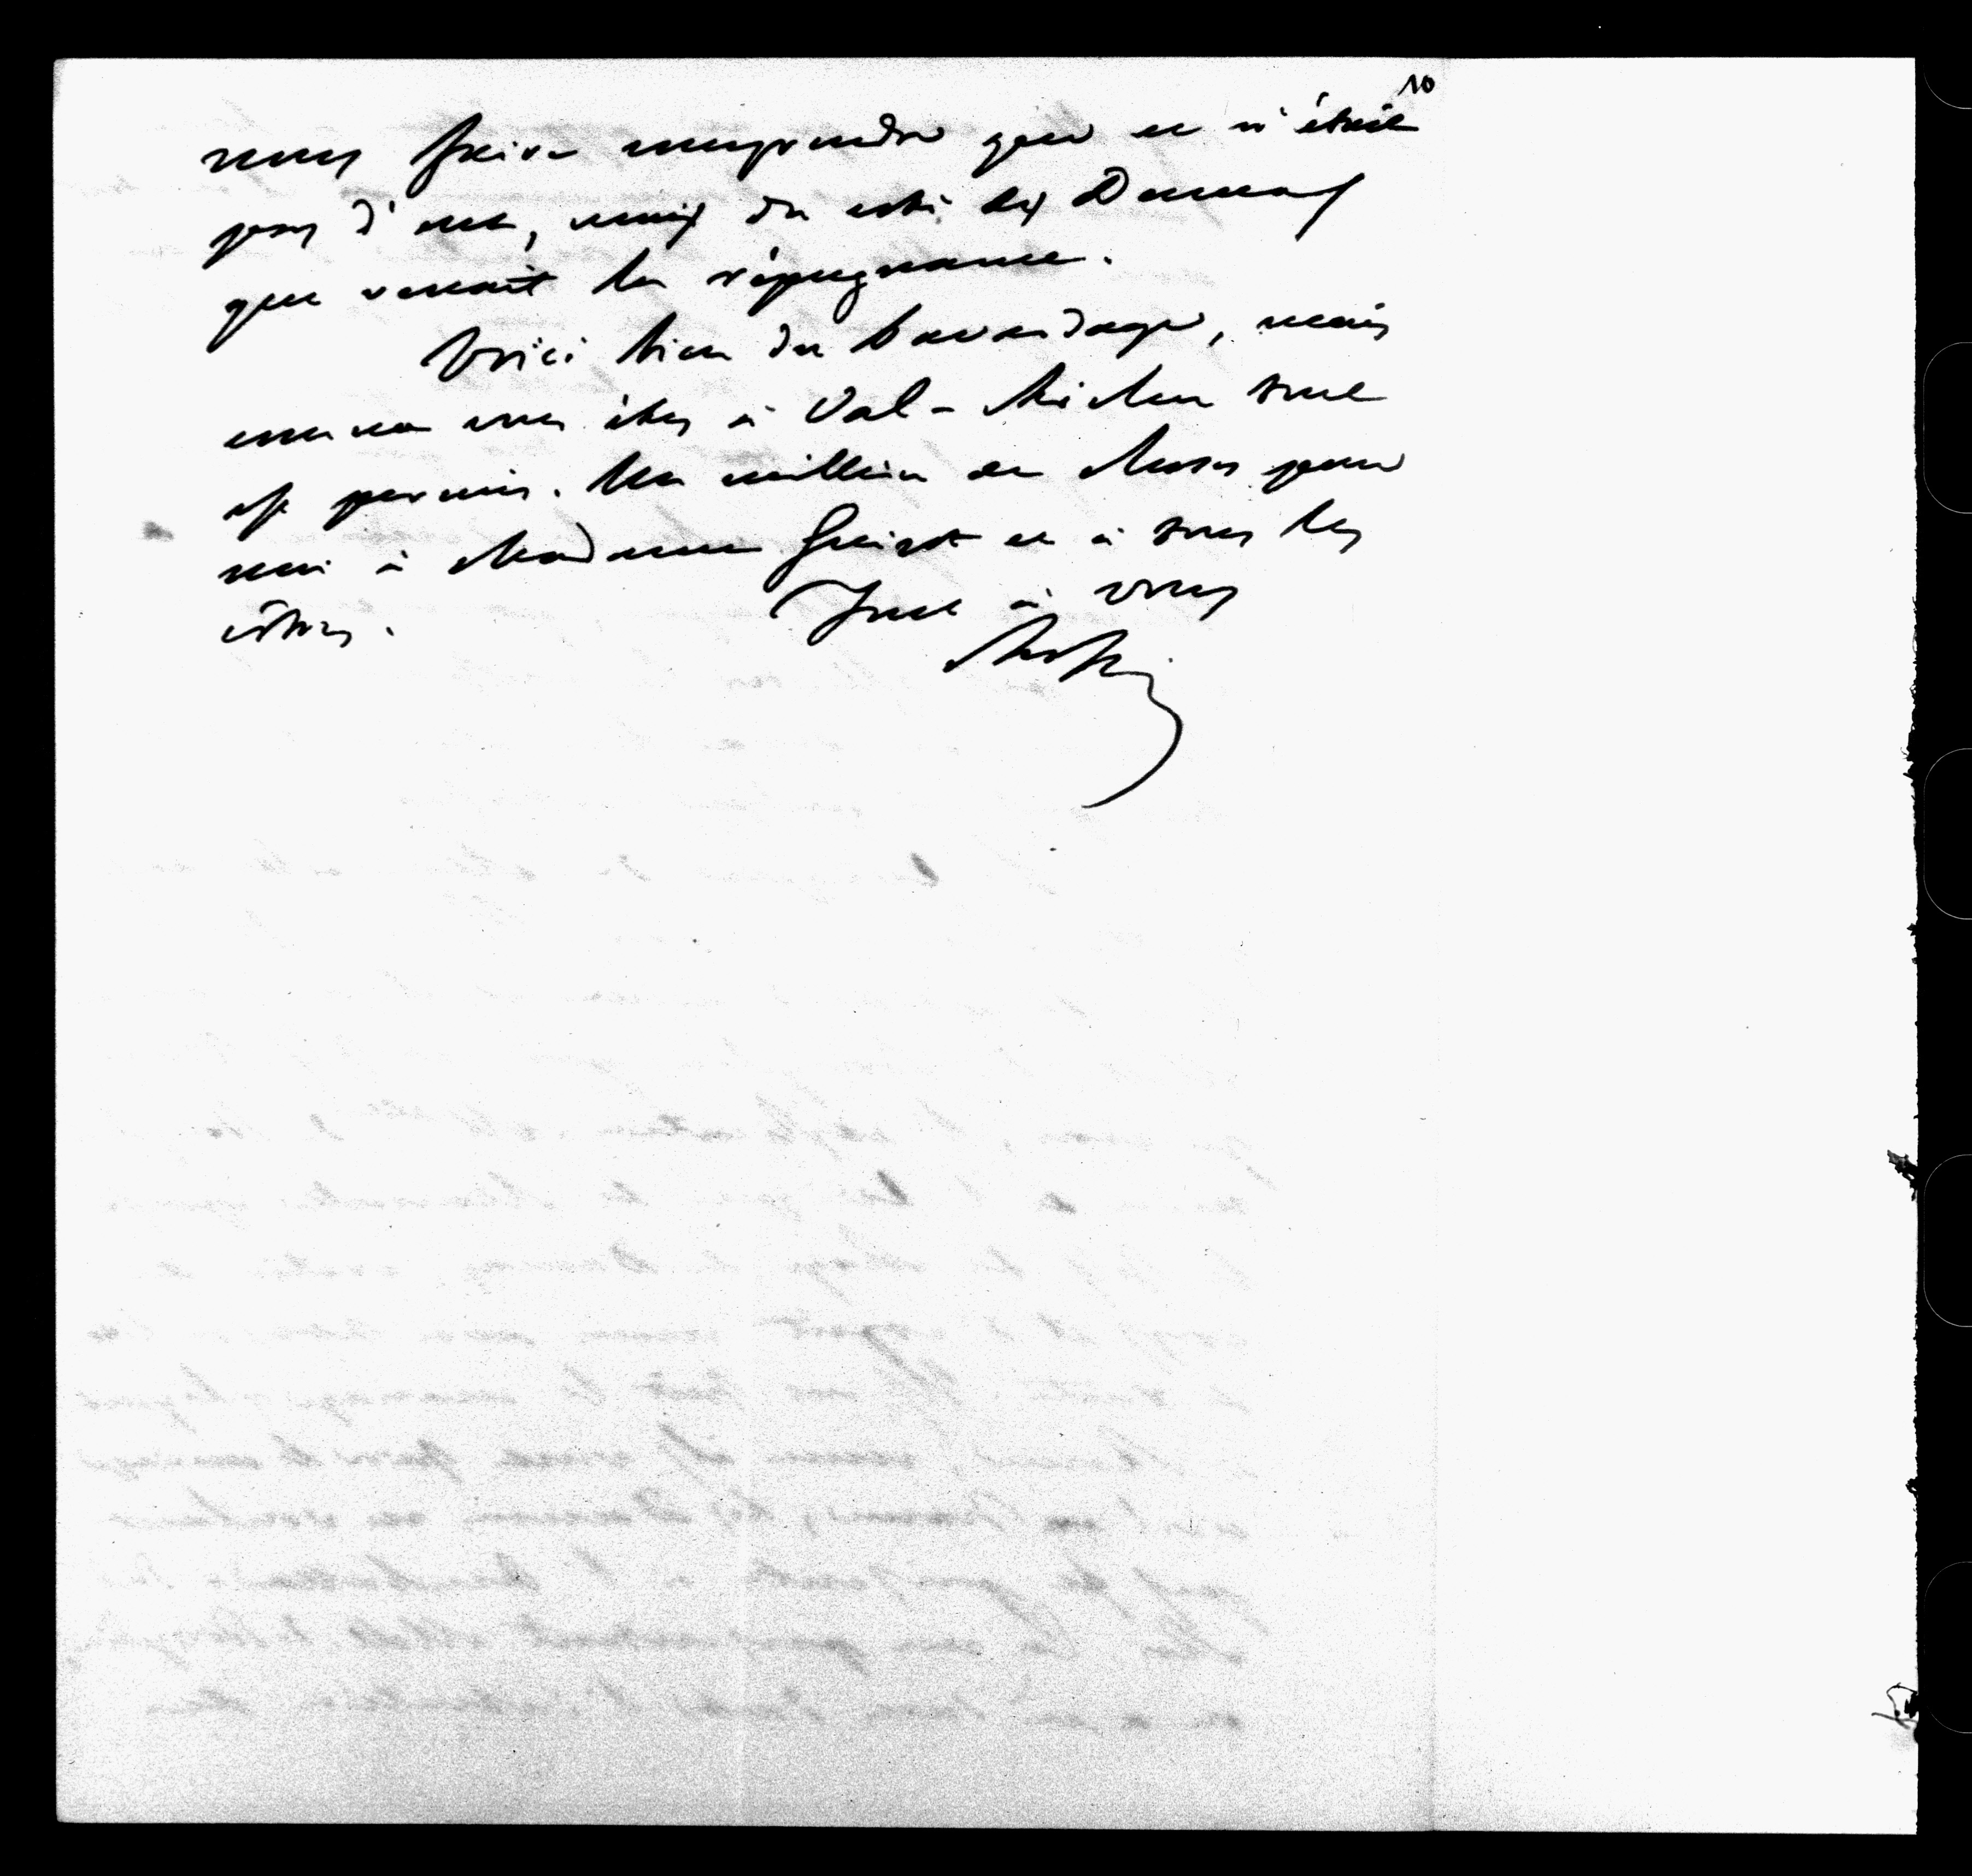 10
nous faire comprendre que ce n'était
pas d'eux, mais du côté des Dumas
que venait la répugnance.
Voici bien du bavardage, mais
comme vous êtes à Val-Richer tout
est permis. Un million de choses pour
moi à Madame Guizot et à tous les
vôtres. Tout à vous